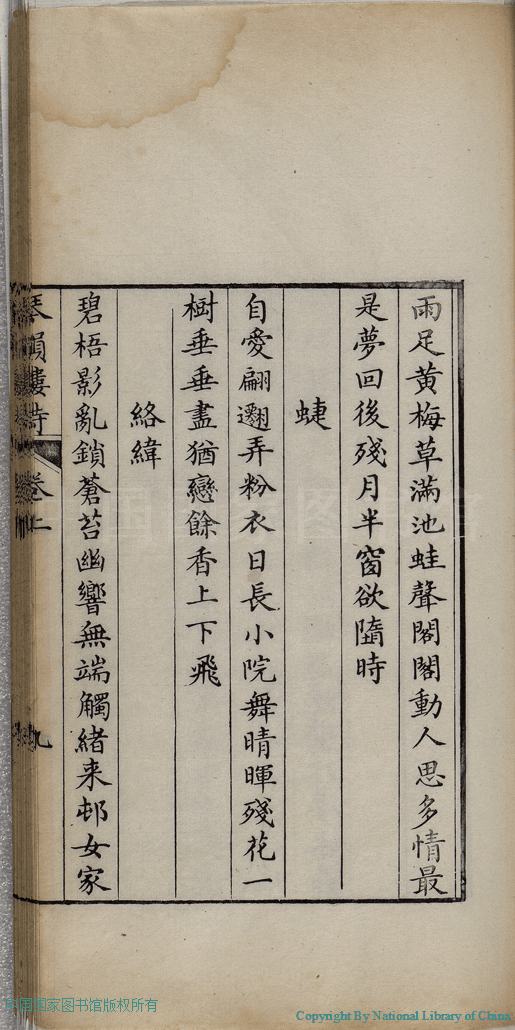 雨足黄梅草滿池蛙聲閣閣動人思多情最
是夢回後殘月半窗欲隨時
蜨
自愛翩翾弄粉衣日長小院舞晴暉殘花一
樹垂垂盡猶戀餘香上下飛
絡緯
碧梧影亂鎖蒼苔幽響無端觸緒来邨女家
琴韻樓詩 卷上 九
中国国家图书馆版权所有
Copyright By National Library of China